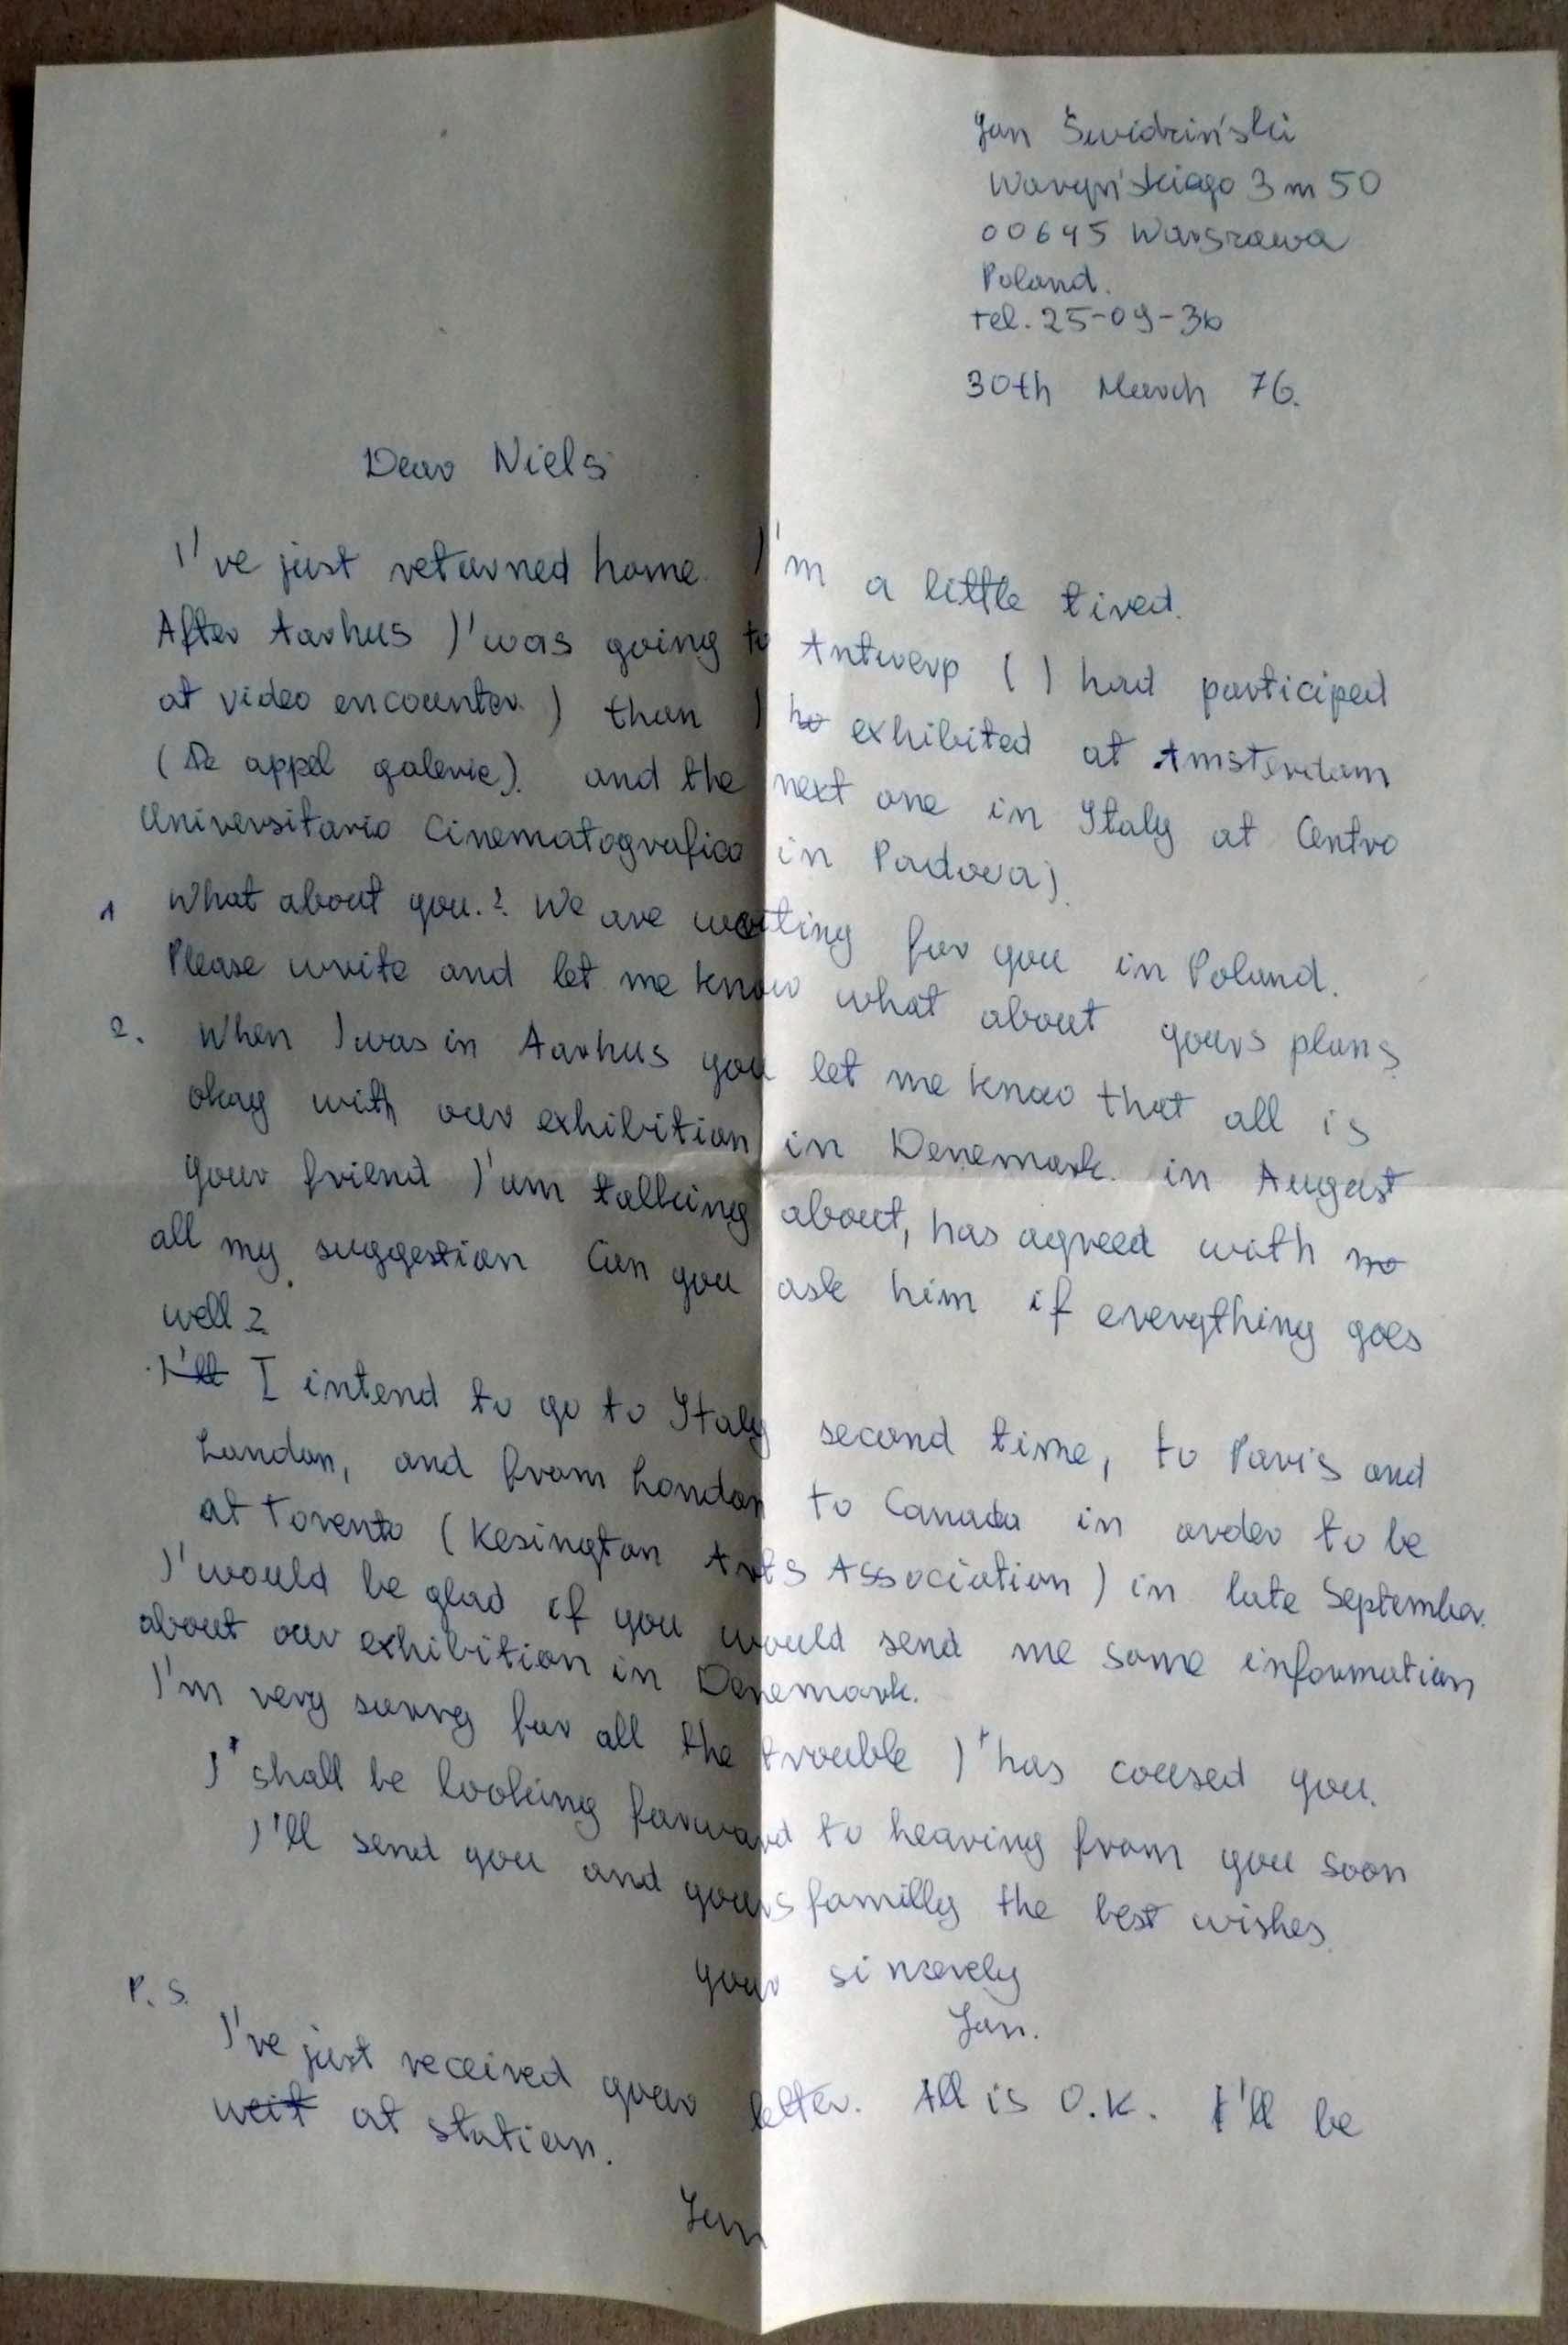 Jan Świdziński
Waryńskiego 3 m 50
00645 Warszawa
Poland.
tel. 25-09-36
30th March 76.
Dear Niels
I've just returned home. I'm a little tired.
After Aarhus I'was going to Antwerp ( I had participed
at video encounter. ) than I ho exhibited at Amsterdam
( De appel galerie). and the next one in Italy at Centro
Universitario Cinematografico in Padova)
1 What about you.? We are waiting for you in Poland.
Please write and let me know what about yours plans
2. When I was in Aarhus you let me know that all is
okay with our exhibition in Denemark. in August
your friend I'am talking about, has agreed with mo
all my suggestion Can you ask him if everything goes
well ?
I'll I intend to go to Italy second time, to Paris and
London, and from London to Canada in order to be
at Torento ( Kesington Arts Association ) in late September.
I'would be glad if you would send me some information
about our exhibition in Denemark.
I'm very sorry for all the trouble I'has coused you.
I'shall be looking forward to hearing from you soon
I'll send you and yours familly the best wishes.
your sincerely
Jan.
P. S.
I've just received your letter. All is O.K. I'll be
weit at station.
Jan